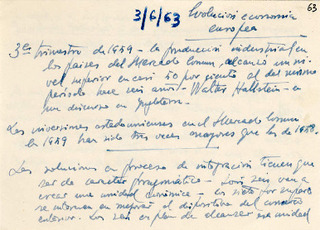 63
3/6/63 Evolución economía
europea
3er trimestre de 1959 - la producción industrial en
los países del Mercado Común, alcanzó un ni-
vel superior en casi 50 por ciento al del mismo
período hace seis años - Walter Hallstein - en
un discurso en Inglaterra.
Las inversiones estadounidenses en el Mercado Común
en 1959 han sido tres veces mayores que las de 1958.
Las soluciones en proceso de integración tienen que
ser de carácter pragmático - Los seis van a
crear una unidad económica - Los siete por su parte
se interesan en mejorar el dispositivo del comercio
exterior. Los seis en plan de alcanzar esa unidad